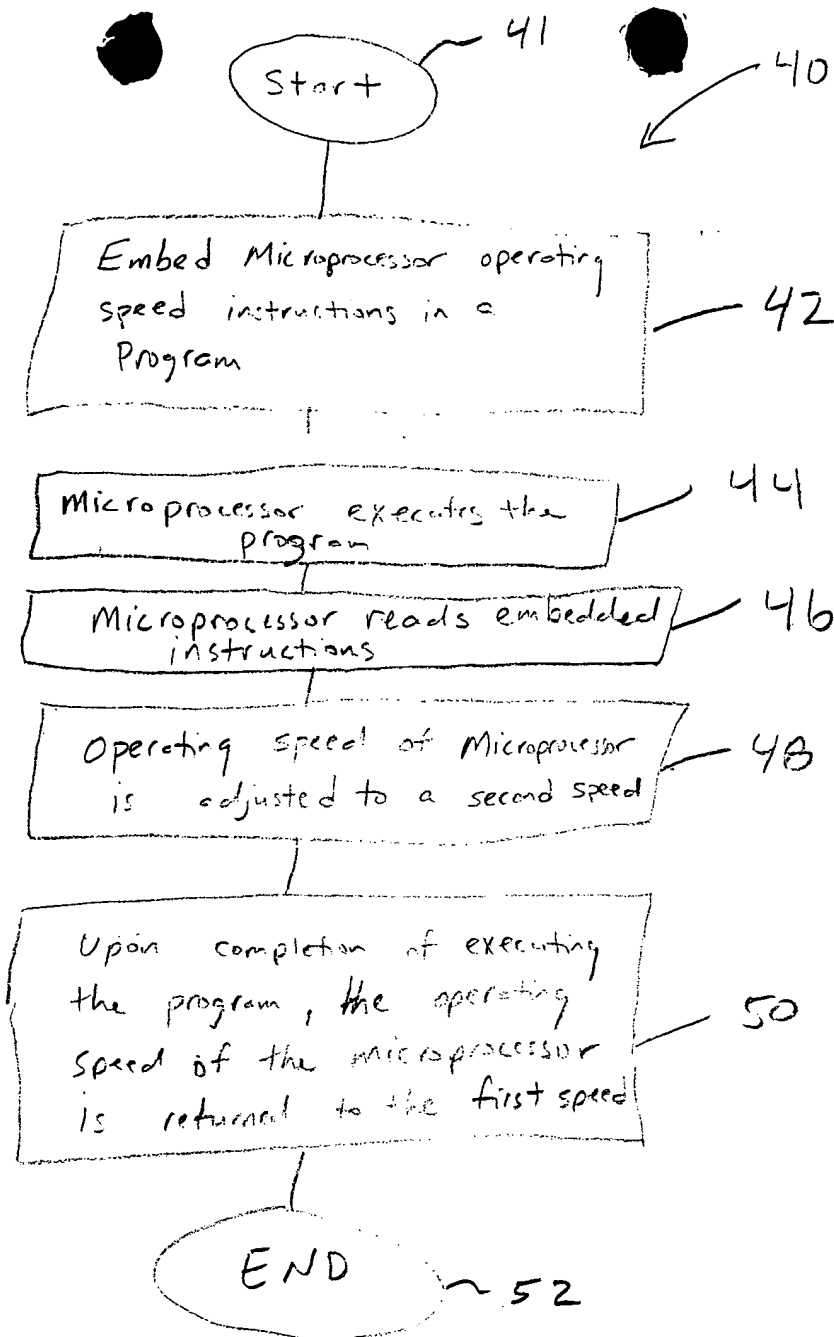 41
Start
40
Embed Microprocessor operating
speed instructions in a
Program
42
Microprocessor executes the
program
44
Microprocessor reads embedded
instructions
46
Operating speed of Microprocessor
is adjusted to a second speed
48
Upon completion of executing
the program, the operating
speed of the microprocessor
is returned to the first speed
50
END
52